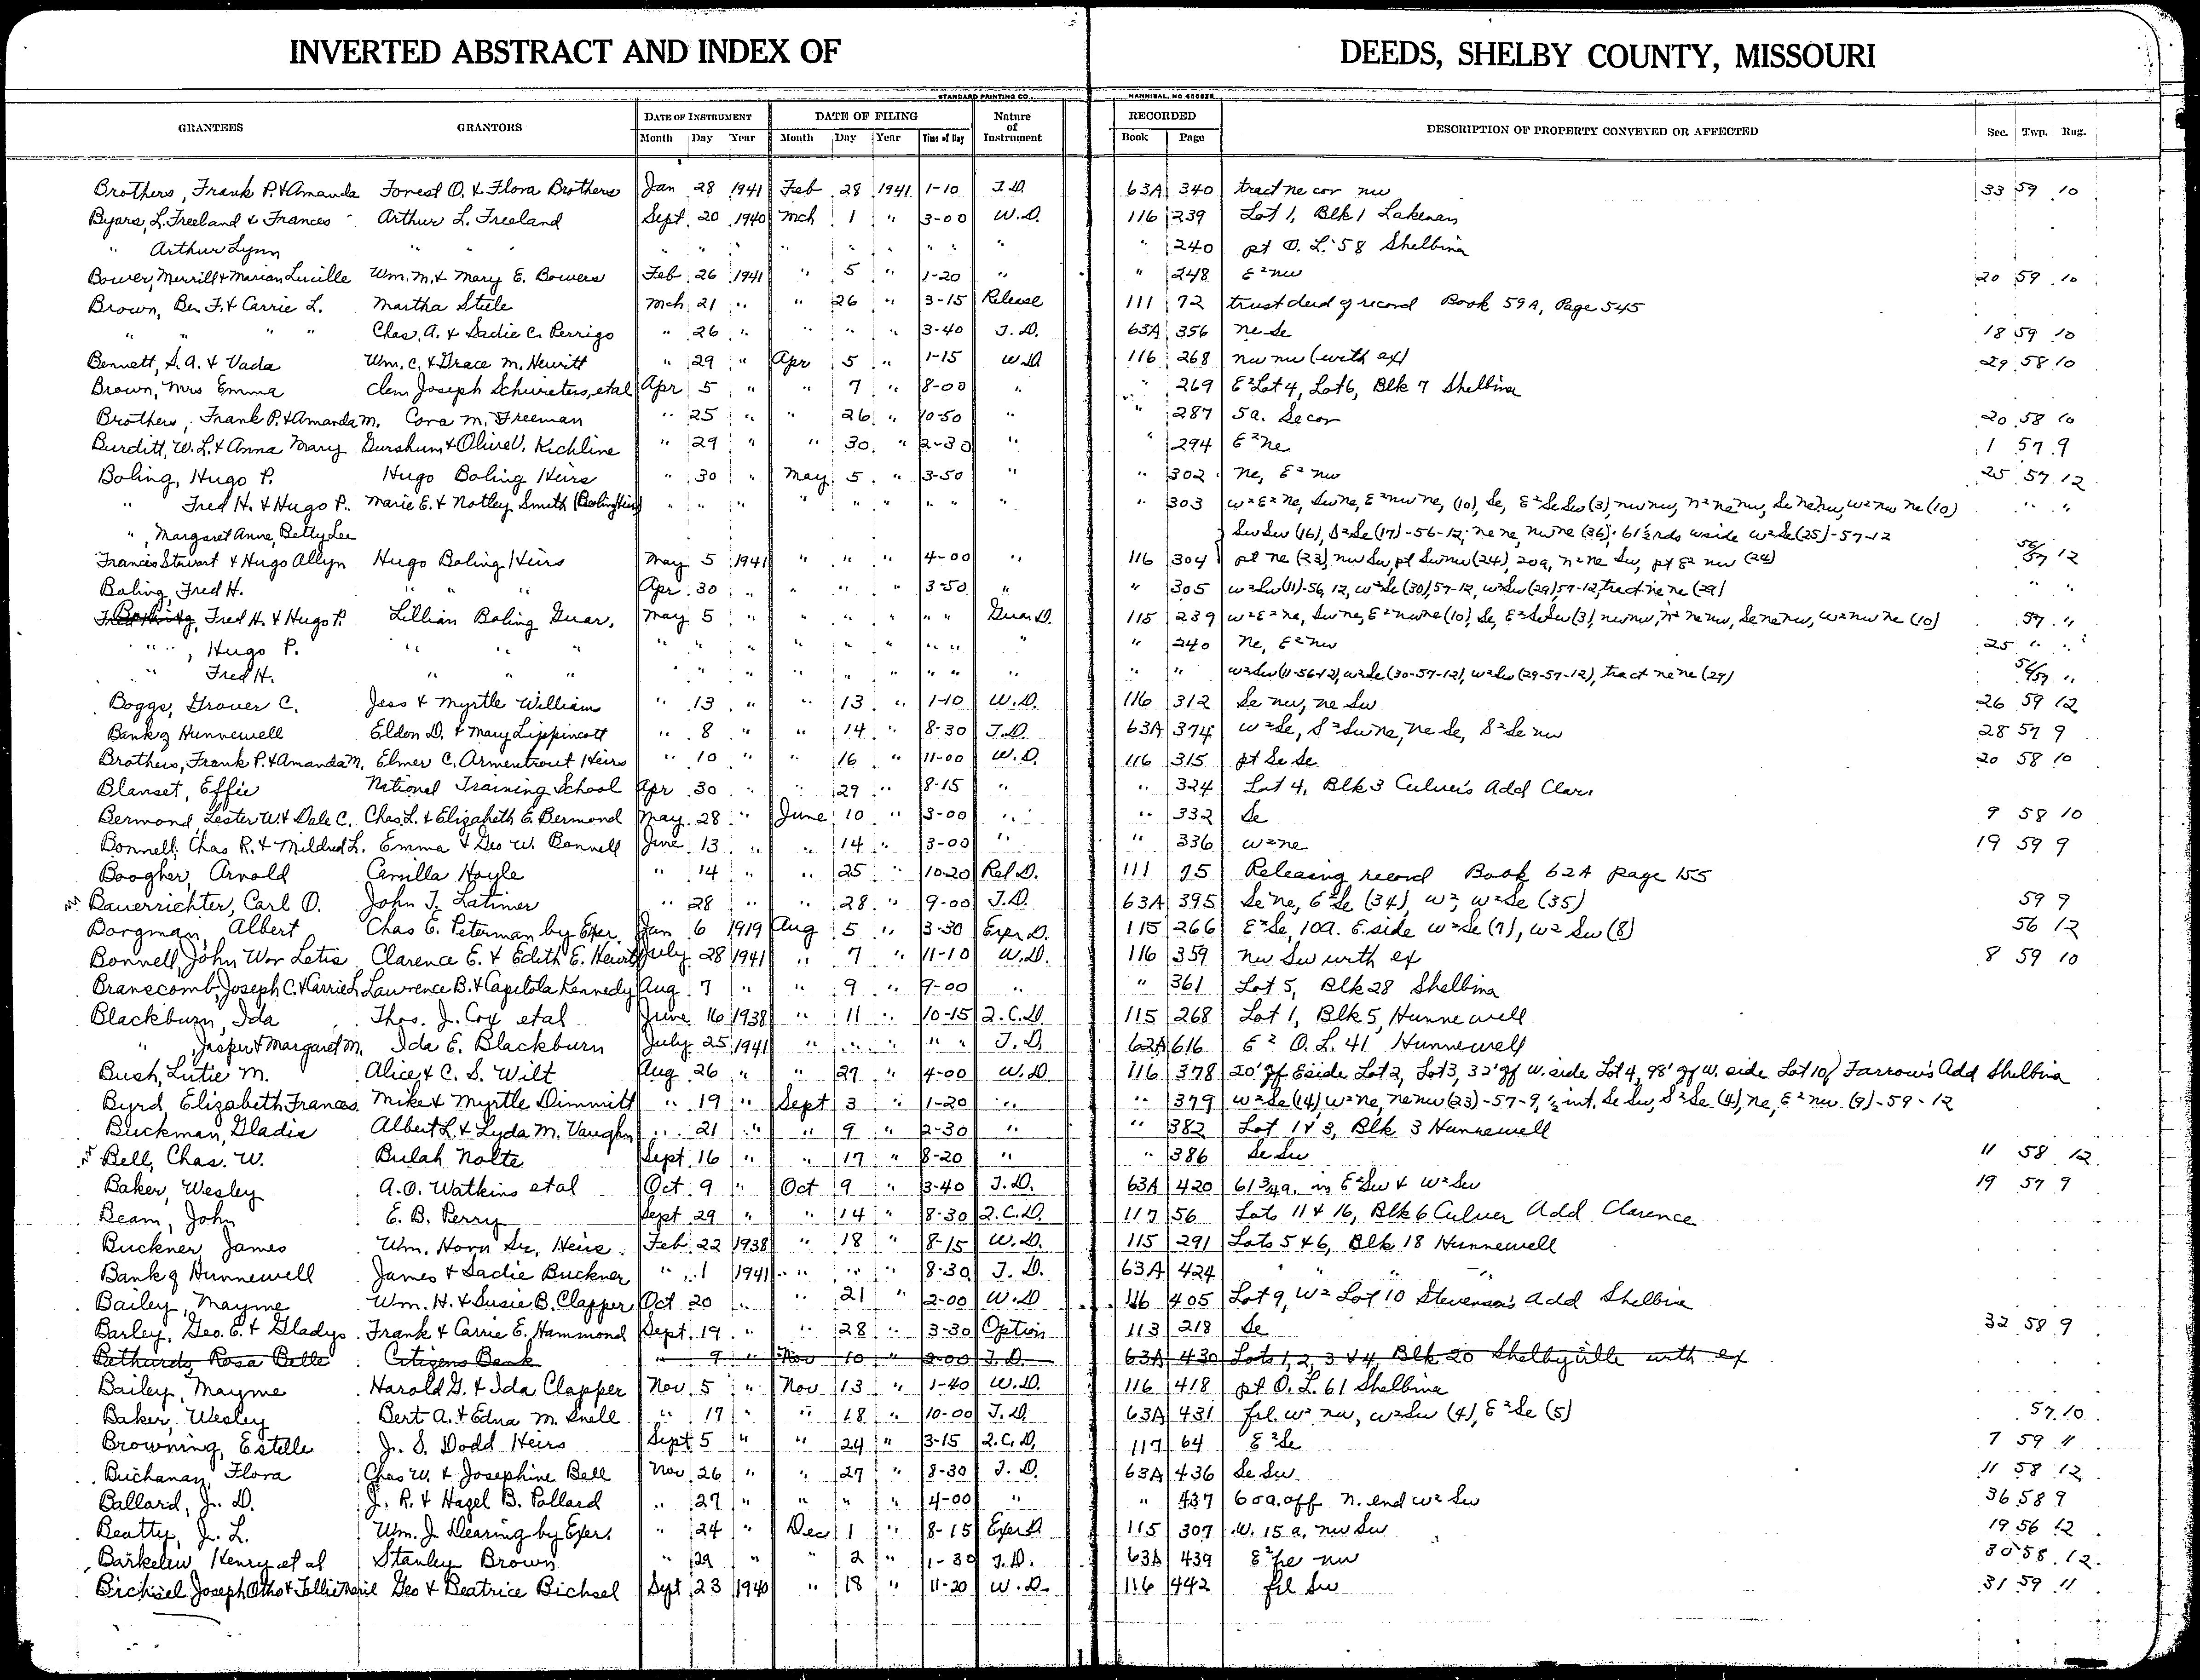 INVERTED ABSTRACT AND INDEX OF DEEDS, SHELBY COUNTY, MISSOURI
STANDARD PRINTING CO. HANNIBAL, MO
GRANTEES GRANTORS DATE OF INSTRUMENT DATE OF FILING Nature of Instrument RECORDED DESCRIPTION OF PROPERTY CONVEYED OR AFFECTED Sec. Twp. Rng.
Month Day Year Month Day Year Time of Day Book Page
Brothers, Frank P. & Amanda Forrest O. & Flora Brothers Jan 28 1941 Feb 28 1941 1-10 T.D. 63A 340 tract ne cor nw 33 59 10
Byars, L. Freeland & Frances Arthur L. Freeland Sept 20 1940 Mch 1 " 3-00 W.D. 116 239 Lot 1, Blk 1 Lakenan
" Arthur Lynn " " " " " " " " " " " " 240 pt O.L. 58 Shelbina
Bower, Merrill & Marian Lucille Wm. M. & Mary E. Bowers Feb 26 1941 " 5 " 1-20 " " 248 E² nw 20 59 10
Brown, Be. F. & Carrie L. Martha Stiele Mch 21 " " 26 " 3-15 Release 111 72 trust deed of record Book 59A, Page 545
" " " " Chas. A. & Sadie C. Perrigo " 26 " " " " 3-40 T.D. 63A 356 ne Se 18 59 10
Bennett, S. A. & Vada Wm. C. & Grace M. Hewitt " 29 " Apr 5 " 1-15 W.D 116 268 nw nw (with ex) 29 58 10
Brown, Mrs Emma Clem Joseph Schwieters, etal Apr 5 " " 7 " 8-00 " " 269 E² Lot 4, Lot 6, Blk 7 Shelbina
Brothers, Frank P. & Amanda M. Cora M. Freeman " 25 " " 26 " 10-50 " " 287 5a. Se cor 20 58 10
Burditt, W. L. & Anna Mary Gurshum & Olive V. Kichline " 29 " " 30 " 2-30 " " 294 E² ne 1 57 9
Boling, Hugo P. Hugo Boling Heirs " 30 " May 5 " 3-50 " " 302 ne, E² nw 25 57 12
" Fred H. & Hugo P. Marie E. & Notley Smith (Boling Heirs) " " " " " " " " " " 303 w² E² ne, Sw ne, E² nw ne, (10), Se, E² Se Sw (3), nw nw, n² ne nw, Se ne nw, w² nw ne (10) " "
" , Margaret Anne, Betty Lee Sw Sw (16), S² Se (17) -56-12; ne ne, nw ne (36); 61½ rds w side w² Se (25) -57-12
Francis Stewart & Hugo Allyn Hugo Boling Heirs May 5 1941 " " " 4-00 " 116 304 pt ne (23), nw Sw, pt Sw nw (24), 20a, n² ne Sw, pt E² nw (24) 56/57 12
Boling, Fred H. " " " Apr 30 " " " " 3-50 " " 305 w² Sw (11)-56, 12, w² Se (30), 57-12, w² Sw (29), 57-12, tract ne ne (29) " "
Boling, Fred H. & Hugo P. Lillian Boling Guar. May 5 " " " " " " Guar D. 115 239 w² E² ne, Sw ne, E² nw ne (10), Se, E² Se Sw (3), nw nw, n² ne nw, Se ne nw, w² nw ne (10) 57 "
" " , Hugo P. " " " " " " " " " " " " " 240 ne, E² nw 25 " "
" Fred H. " " " " " " " " " " " " " " w² Sw (11-56-12), w² Se (30-57-12), w² Sw (29-57-12), tract ne ne (29) 56/57 "
Boggs, Grover C. Jess & Myrtle William " 13 " " 13 " 1-10 W.D. 116 312 Se nw, ne Sw 26 59 12
Bank of Hunnewell Eldon D. & Mary Lippincott " 8 " " 14 " 8-30 T.D. 63A 374 w² Se, S² Sw ne, ne Se, S² Se nw 28 57 9
Brothers, Frank P. & Amanda M. Elmer C. Armentrout Heirs " 10 " " 16 " 11-00 W.D. 116 315 pt Se Se 20 58 10
Blanset, Effie National Training School Apr 30 " " 29 " 8-15 " " 324 Lot 4, Blk 3 Culver's Add Clar.
Bermond, Lester W. & Dale C. Chas. L. & Elizabeth E. Bermond May 28 " June 10 " 3-00 " " 332 Se 9 58 10
Bonnell, Chas R. & Mildred L. Emma & Geo W. Bonnell June 13 " " 14 " 3-00 " " 336 w² ne 19 59 9
Boogher, Arnold Camilla Hoyle " 14 " " 25 " 10-20 Rel D. 111 75 Releasing record Book 62A page 155
Bauerrichter, Carl O. John T. Latimer " 28 " " 28 " 9-00 T.D. 63A 395 Se ne, E² Se (34), w², w² Se (35) 59 9
Borgman, Albert Chas E. Peterman by Exer. Jan 6 1919 Aug 5 " 3-30 Exer D. 115 266 E² Se, 10a. E. side w² Se (7), w² Sw (8) 56 12
Bonnell, John W or Letis Clarence E. & Edith E. Hewitt July 28 1941 " 7 " 11-10 W.D. 116 359 nw Sw with ex 8 59 10
Branscomb, Joseph C. & Carrie L. Lawrence B. & Capitola Kennedy Aug 7 " " 9 " 9-00 " " 361 Lot 5, Blk 28 Shelbina
Blackburn, Ida Thos. J. Cox etal June 16 1938 " 11 " 10-15 2.C.D. 115 268 Lot 1, Blk 5, Hunnewell
" , Jasper & Margaret M. Ida E. Blackburn July 25 1941 " " " " " T.D. 62A 616 E² O.L. 41 Hunnewell
Bush, Lutie M. Alice & C. S. Wilt Aug 26 " " 27 " 4-00 W.D 116 378 20' of E side Lot 2, Lot 3, 32' of W. side Lot 4, 98' of W. side Lot 10, Farrow's Add Shelbina
Byrd, Elizabeth Frances Mike & Myrtle Dimmitt " 19 " Sept 3 " 1-20 " " 379 w² Se (14), w² ne, ne nw (23) -57-9, ½ int. Se Sw, S² Se (4), ne, E² nw (9) -59-12
Buckman, Gladis Albert L. & Lyda M. Vaughn " 21 " " 9 " 2-30 " " 382 Lot 1 & 3, Blk 3 Hunnewell
Bell, Chas. W. Bulah Nolte Sept 16 " " 17 " 8-20 " " 386 Se Sw 11 58 12
Baker, Wesley A.O. Watkins etal Oct 9 " Oct 9 " 3-40 T.D. 63A 420 61 3/4a. in E² Sw & w² Sw 19 57 9
Beam, John E. B. Perry Sept 29 " " 14 " 8-30 2.C.D. 117 56 Lots 11 & 16, Blk 6 Culver Add Clarence
Buckner, James Wm. Horn Sr. Heirs Feb 22 1938 " 18 " 8-15 W.D. 115 291 Lots 5 & 6, Blk 18 Hunnewell
Bank of Hunnewell James & Sadie Buckner " 1 1941 " " " 8-30 T.D. 63A 424 " " " "
Bailey, Mayme Wm. H. & Susie B. Clapper Oct 20 " " 21 " 2-00 W.D 116 405 Lot 9, W² Lot 10 Stevenson's Add Shelbina
Barley, Geo. E. & Gladys Frank & Carrie E. Hammond Sept 19 " " 28 " 3-30 Option 113 218 Se 32 58 9
Bethards, Rosa Belle Citizens Bank " 9 " Nov 10 " 2-00 T.D. 63A 430 Lots 1, 2, 3 & 4, Blk 20 Shelbyville with ex
Bailey, Mayme Harold G. & Ida Clapper Nov 5 " Nov 13 " 1-40 W.D. 116 418 pt O.L. 61 Shelbina
Baker, Wesley Bert A. & Edna M. Snell " 17 " " 18 " 10-00 T.D. 63A 431 frl. w² nw, w² Sw (4), E² Se (5) 57 10
Browning, Estelle J. S. Dodd Heirs Sept 5 " " 24 " 3-15 2.C.D. 117 64 E² Se 7 59 11
Buchanan, Flora Chas W. & Josephine Bell Nov 26 " " 27 " 8-30 T.D. 63A 436 Se Sw 11 58 12
Ballard, J. D. J. R. & Hazel B. Pollard " 27 " " " " 4-00 " " 437 60a. off N. end w² Sw 36 58 9
Beatty, J. L. Wm. J. Dearing by Exer. " 24 " Dec 1 " 8-15 Exer D. 115 307 W. 15 a, nw Sw 19 56 12
Barkelew, Henry et al Stanley Brown " 29 " " 2 " 1-30 T.D. 63A 439 E² ne nw 30 58 12
Bichsel Joseph Otho & Tollie Marie Geo & Beatrice Bichsel Sept 23 1940 " 18 " 11-20 W.D. 116 442 frl Sw 31 59 11